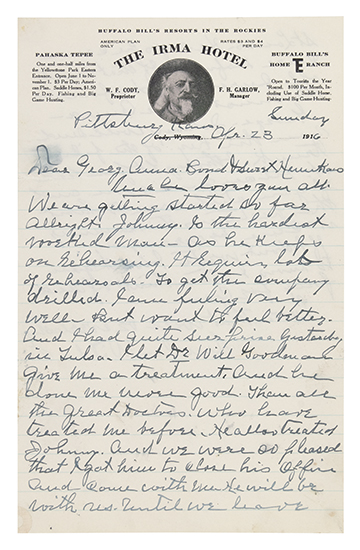 BUFFALO BILL'S RESORTS IN THE ROCKIES
PAHASKA TEPEE
One and one-half miles from
the Yellowstone Park Eastern
Entrance. Open June 1 to November
1. $3 Per Day. American
Plan. Saddle Horses, $1.50
Per Day. Fishing and Big
Game Hunting
AMERICAN PLAN
ONLY
RATES $3 AND $4
PER DAY
THE IRMA HOTEL
W. F. CODY,
Proprietor
F. H. GARLOW,
Manager
BUFFALO BILL'S
HOME TE RANCH
Open to Tourists the Year
Round. $100 Per Month, Including
Use of Saddle Horse.
Fishing and Big Game Hunting.
Sunday
Pittsburg Kansas Apr. 23 1916
Cody, Wyoming,
Dear Georg, Anna. Cond
Uncle loves you all.
We are getting started so far
allright. Johnny. Is the hardest
worked Man - as he keeps
on Rehearsing. It Requires lots
of Rehearsals. To get the company
drilled. I am feeling very
well. But want to feel better.
And I had quite surprise yesterday
in Tulsa I let Dr Will
Give me a treatment. And he
done me more good. Than all
the Great Doctors. Who have
treated me before. He also treated
Johnny. And we were so pleased
that I got him to close his Office
And come with me. He will be
with us. Until we leave